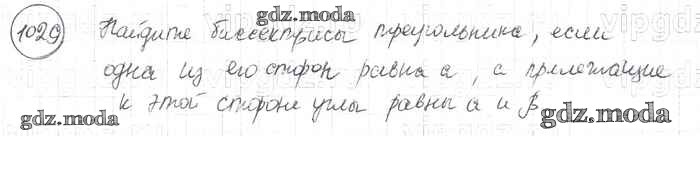 gdz.moda
1029 Найдите биссектрисы треугольника, если
одна из его сторон равна a, а прилежащие
gdz.moda
к этой стороне углы равны α и β
gdz.moda
gdz.moda